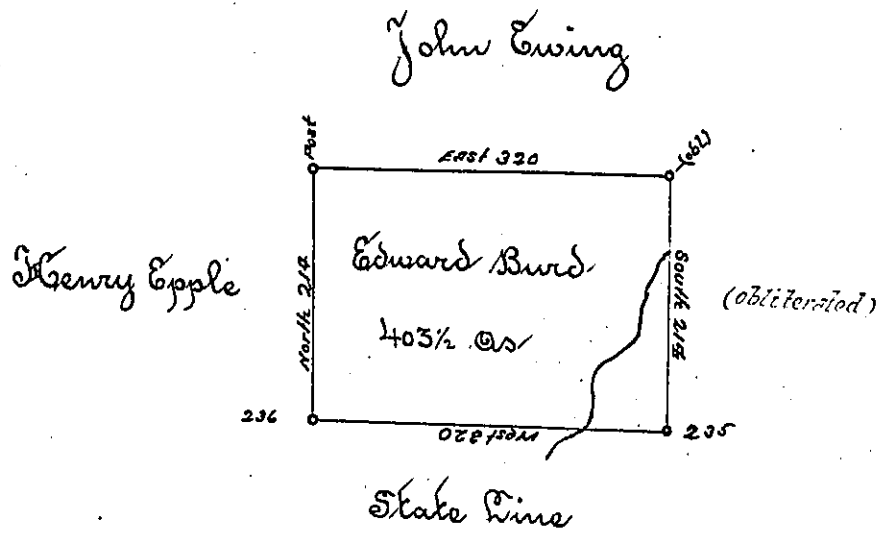 John Ewing
Post
East 320
(obl)
Henry Epple
North 214
Edward Burd
403½ As
South 214
(obliterated)
236
West 320
235
State Line